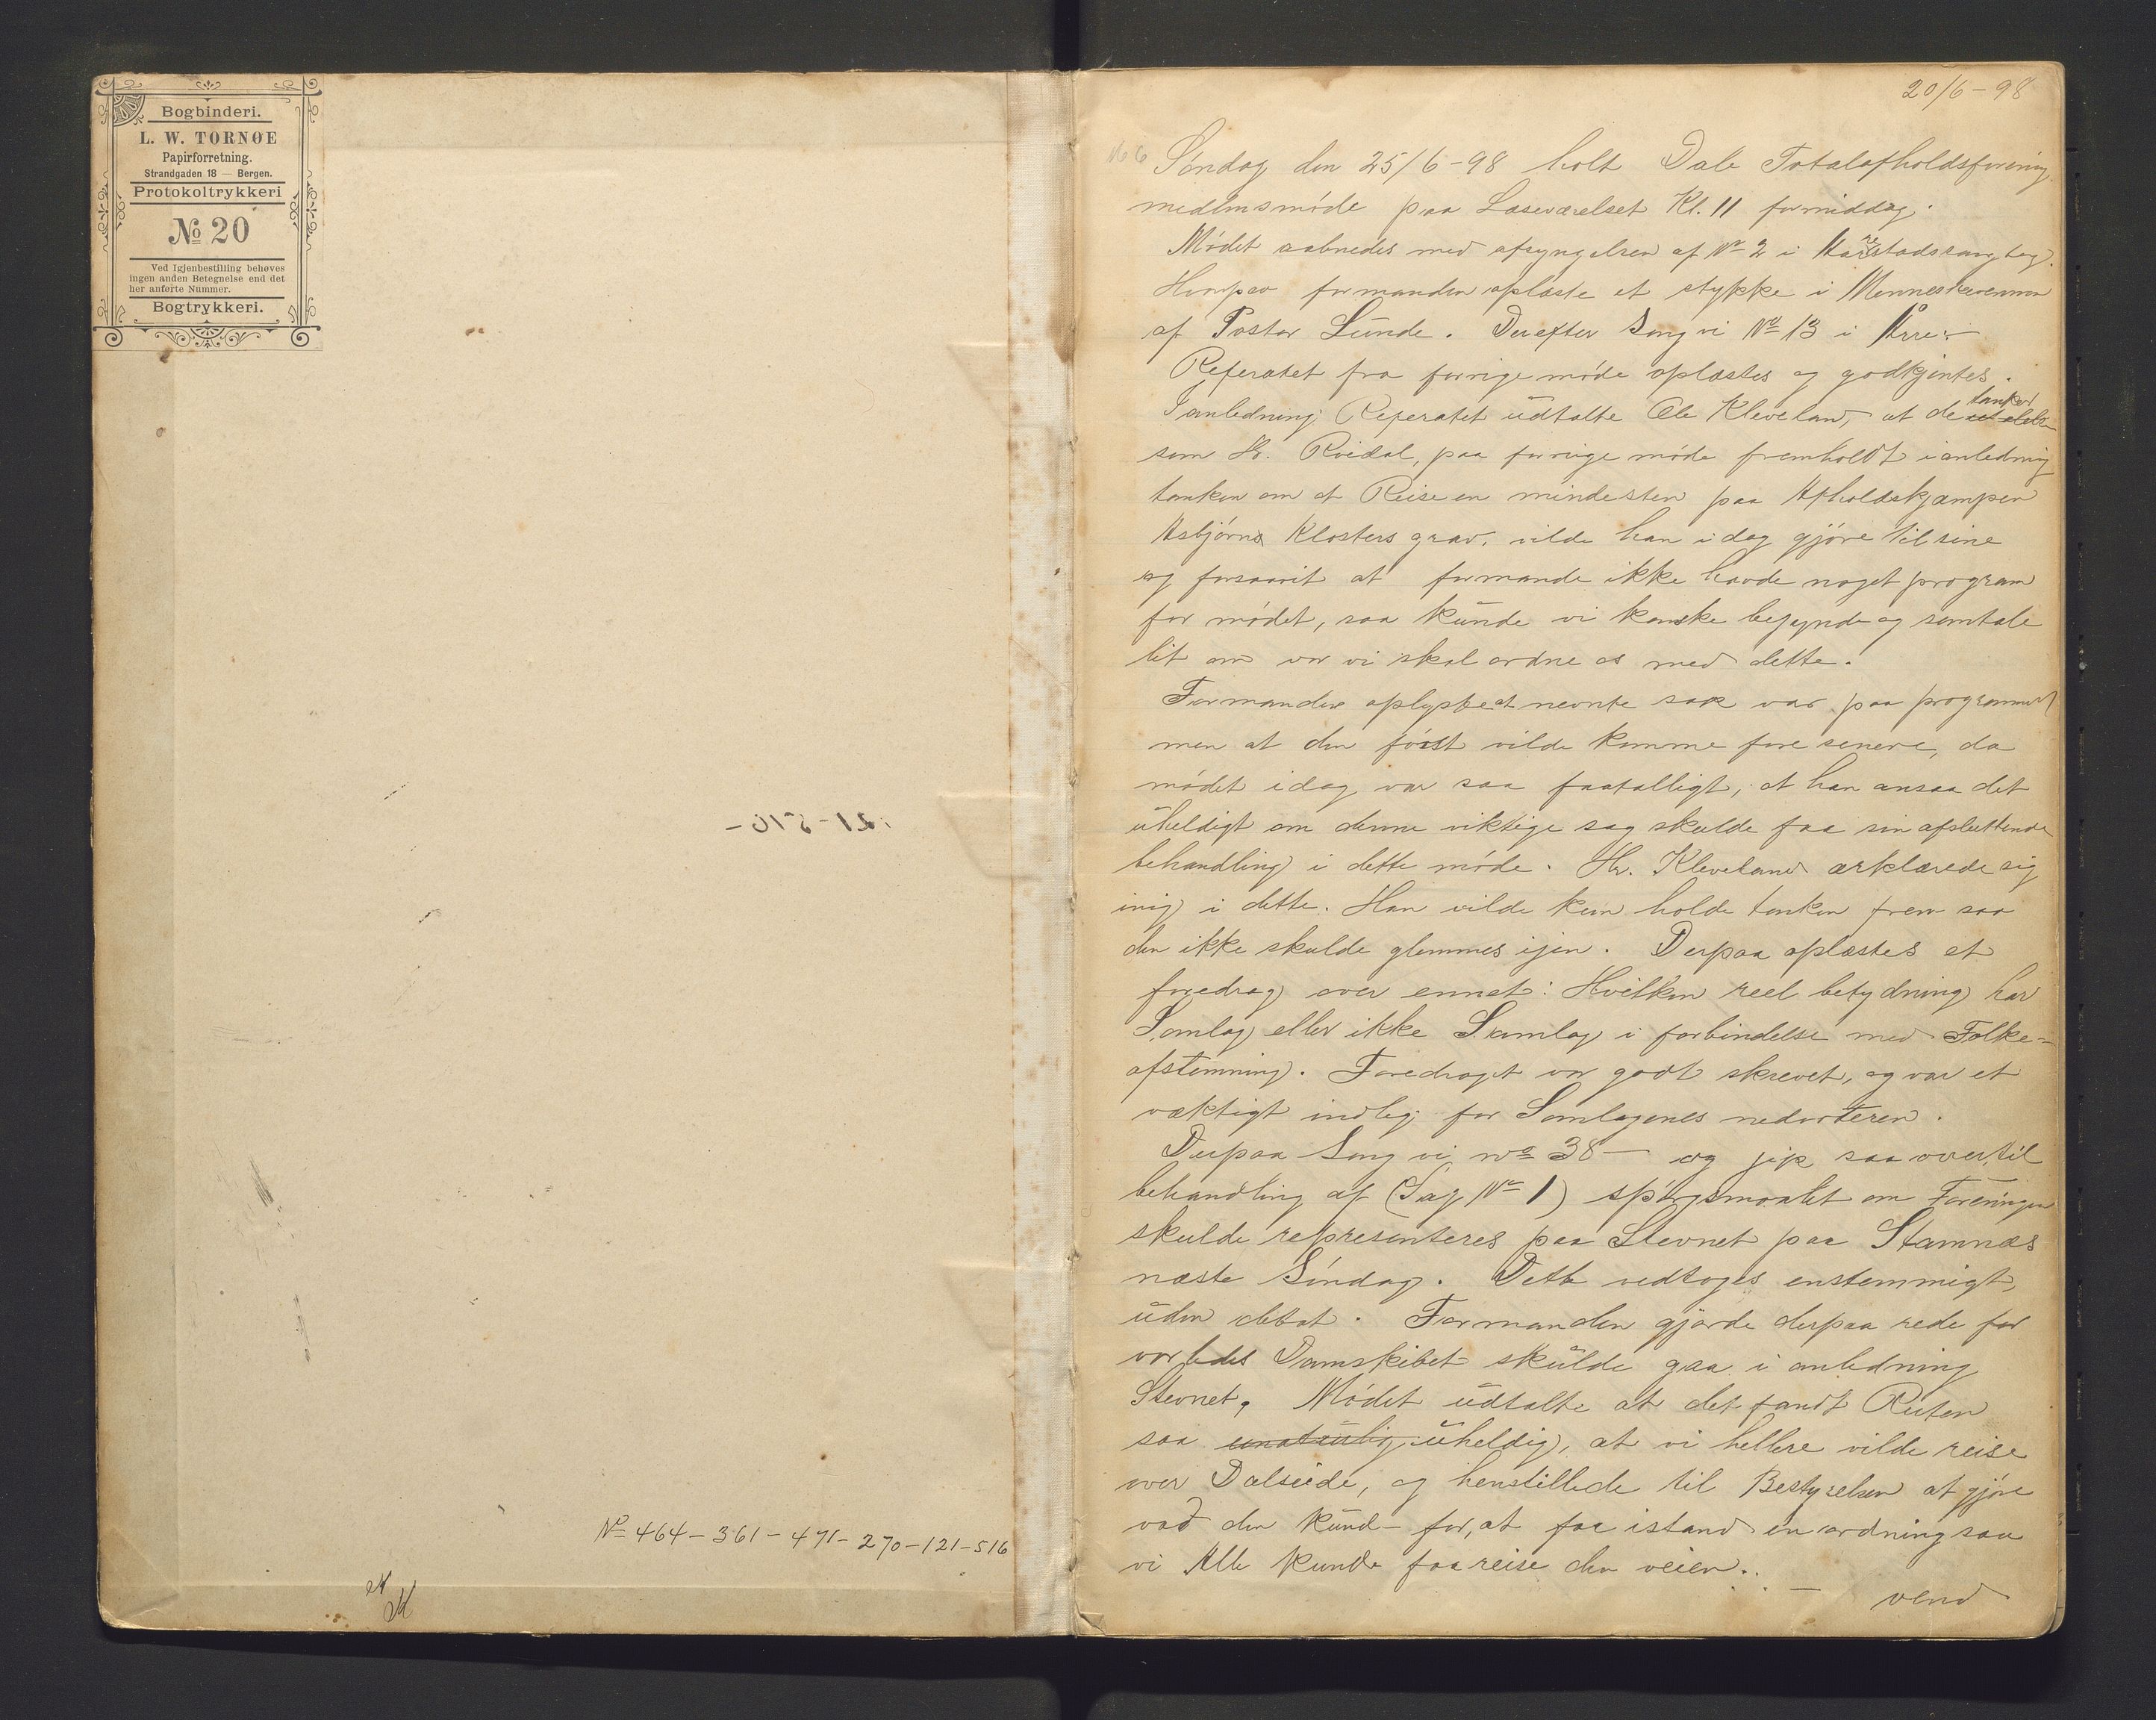 Bogbinderi.
L. W. TORNØE
Papirforretning.
Strandgaden 18 — Bergen.
Protokoltrykkeri
No 20
Ved Igjenbestilling behøves
ingen anden Betegnelse end det
her anførte Nummer.
Bogtrykkeri.
No 464-361-471-270-121-516
20/6-98
Søndag den 25/6-98 holt Dale Totalafholdsforening
medlmsmøde paa Læseværelset Kl. 11 formiddag.
Mødet aabnedes med afsyngelsen af No 2 i
Hærpaa formanden oplæste et stykke i Menneskevennen
af Pastor Lunde. Derefter Sang vi No 13 i
Referatet fra forrige møde oplæstes og godkjentes.
I anledning Referatet udtalte Ole Kleveland, at de tanker
som Hr. Roidal, paa forrige møde fremholdt i anledning
tanken om at Reise en mindesten paa Afholdskjæmpen
Asbjørns Klosters grav, vilde han i dag gjøre til sine
og forsaavit at formande ikke havde noget program
for mødet, saa kunde vi kanske begynde og samtale
lit om vor vi skal ordne os med dette.
Formanden oplyste at nevnte sak var paa programmet
men at den først vilde komme fore senere, da
mødet idag var saa faatalligt, at han ansaa det
uheldigt om denne viktige sag skulde faa sin afsluttende
behandling i dette møde. Hr. Kleveland ærklærede sig
inig i dette. Han vilde kun holde tanken frem saa
den ikke skulde glemmes ijen. Derpaa oplæstes et
foredrag over ennet: Hvilken reel betydning har
Samlag eller ikke Samlag i forbindelse med Folke-
afstemning. Foredraget var godt skrevet, og var et
væktigt indleg for Samlagenes nedvoteren.
Derpaa Sang vi no 38 — og jik saa over til
behandling af (Sag No 1) spørgsmaalet om Foreningen
skulde representeres paa Stevnet paa Stamnæs
næste Søndag. Dette vedtoges enstemmigt,
uden debat. Formanden gjorde derpaa rede for
vorledes Damskibet skulde gaa i anledning
Stevnet. Mødet udtalte at det fandt Ruten
saa unaturlig uheldig, at vi hellere vilde reise
over Dalseide, og henstillede til Bestyrelsen at gjøre
vad den kund- for, at faa istand en ordning saa
vi Alle kunde faa reise den veien..
— vend